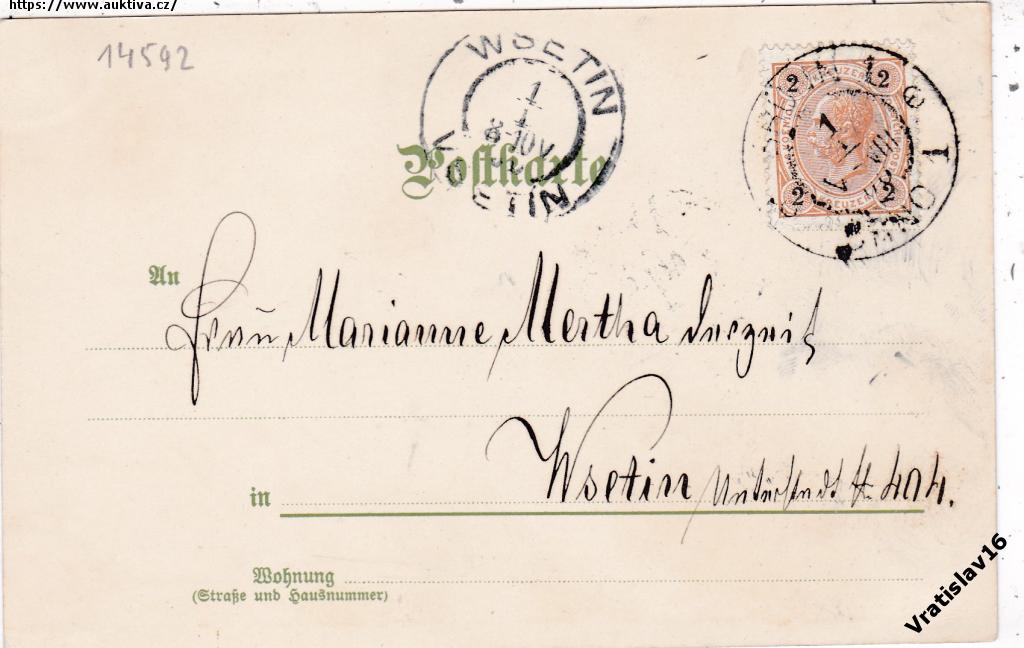 https://www.auktiva.cz/
14592
WSETIN
1
1
8-10V
VSETIN
Postkarte
2 KREUZER 2
2 KREUZER 2
An
Frau Marianne Mertha derzeit
Wsetin Unterstadt № 404.
in
Wohnung
(Straße und Hausnummer)
Vratislav16